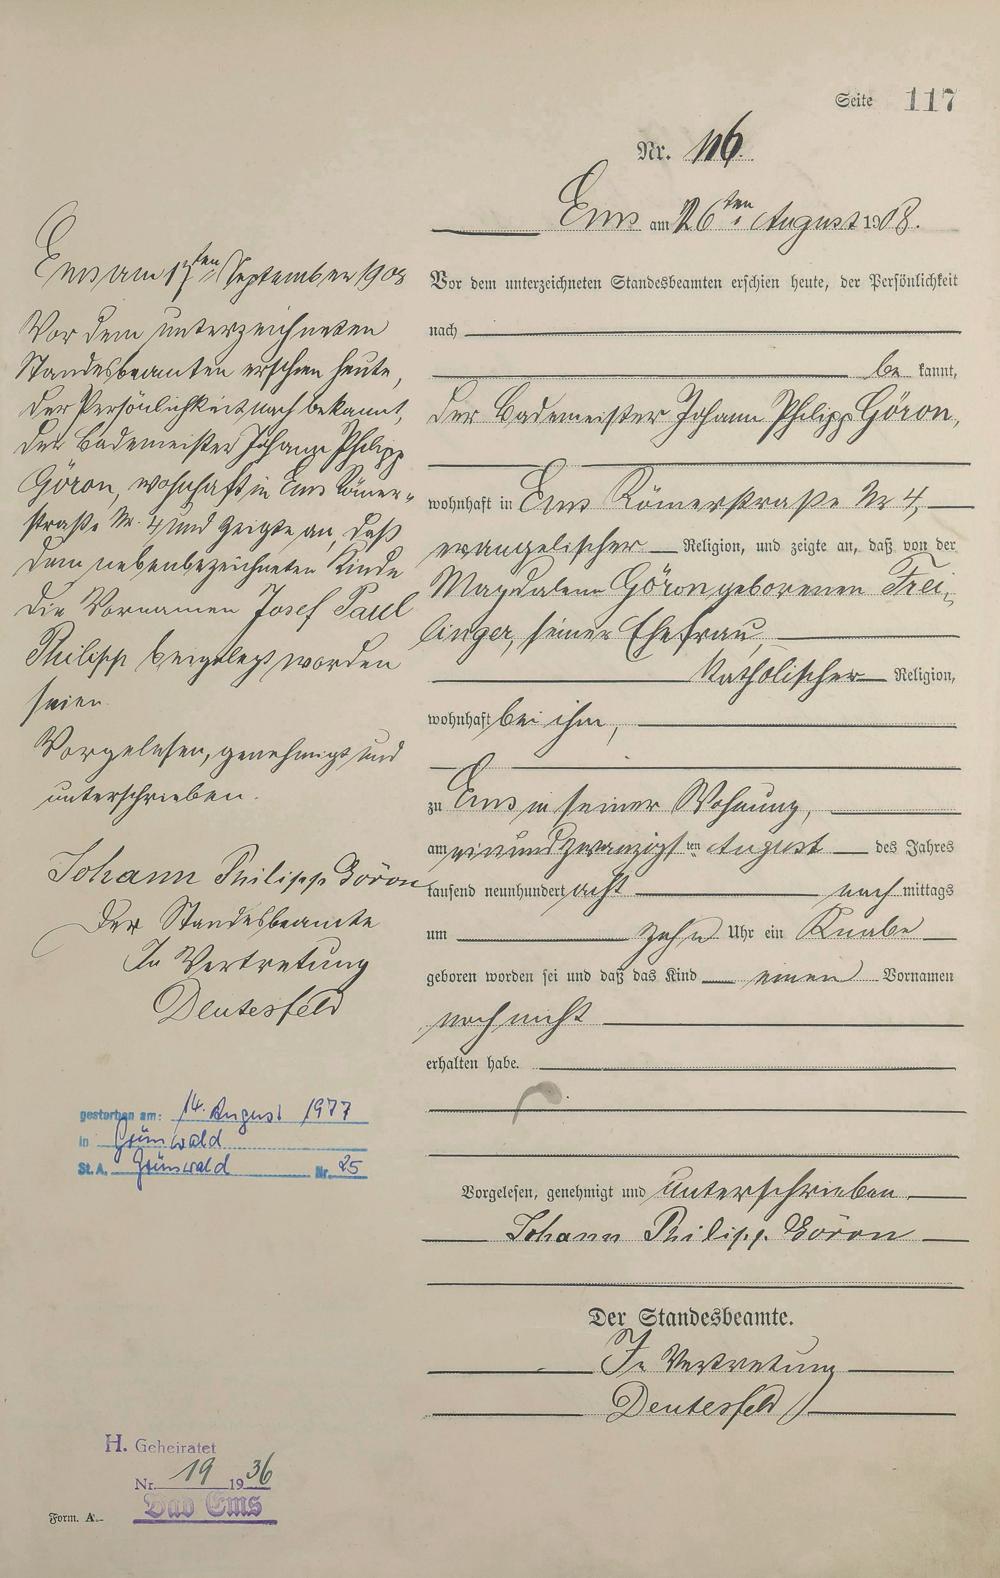 Seite 117
Nr. 116.
Ems am 26ten August 1908.
Vor dem unterzeichneten Standesbeamten erschien heute, der Persönlichkeit
nach
be kannt,
der Bademeister Johann Philipp Göron,
wohnhaft in Ems Römerstraße Nr 4,
evangelischer Religion, und zeigte an, daß von der
Magdalena Göron geborenen Frei-
linger, seiner Ehefrau,
katholischer Religion,
wohnhaft bei ihm,
zu Ems in seiner Wohnung,
am einundzwanzigsten August des Jahres
tausend neunhundert acht nach mittags
um zehn Uhr ein Knabe
geboren worden sei und daß das Kind einen Vornamen
noch nicht
erhalten habe.
Vorgelesen, genehmigt und unterschrieben
Johann Philipp Göron
Der Standesbeamte.
In Vertretung
Deutesfeld
Ems am 17ten September 1908
Vor dem unterzeichneten
Standesbeamten erschien heute,
der Persönlichkeit nach bekannt,
der Bademeister Johann Philipp
Göron, wohnhaft in Ems Römer-
straße Nr. 4 und zeigte an, daß
dem nebenbezeichneten Kinde
die Vornamen Josef Paul
Philipp beigelegt worden
seien.
Vorgelesen, genehmigt und
unterschrieben.
Johann Philipp Göron
Der Standesbeamte
In Vertretung
Deutesfeld
gestorben am: 14. August 1977
in Grünwald
St. A. Grünwald Nr. 25
H. Geheiratet
Nr. 19 1936
Bad Ems
Form. A.